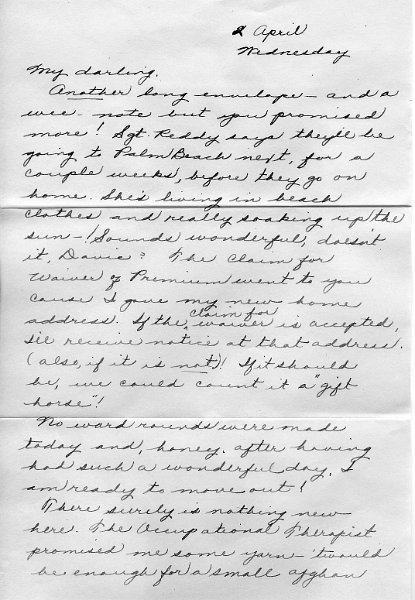 2 April
Wednesday
My darling,
Another long envelope - and a
wee note but you promised
more! Sgt. Reddy says they'll be
going to Palm Beach next, for a
couple weeks, before they go on
home. She's living in beach
clothes and really soaking up the
sun - ! Sounds wonderful, doesn't
it, Davie? The Claim for
Waiver of Premium went to you
cause I gave my new home
address. If the claim for waiver is accepted,
I'll receive notice at that address.
(also, if it is not)! If it should
be, we could count it a "gift
horse"!
No ward rounds were made
today and, honey, after having
had such a wonderful day, I
am ready to move out!
There surely is nothing new
here. The Occupational Therapist
promised me some yarn - 'twould
be enough for a small afghan